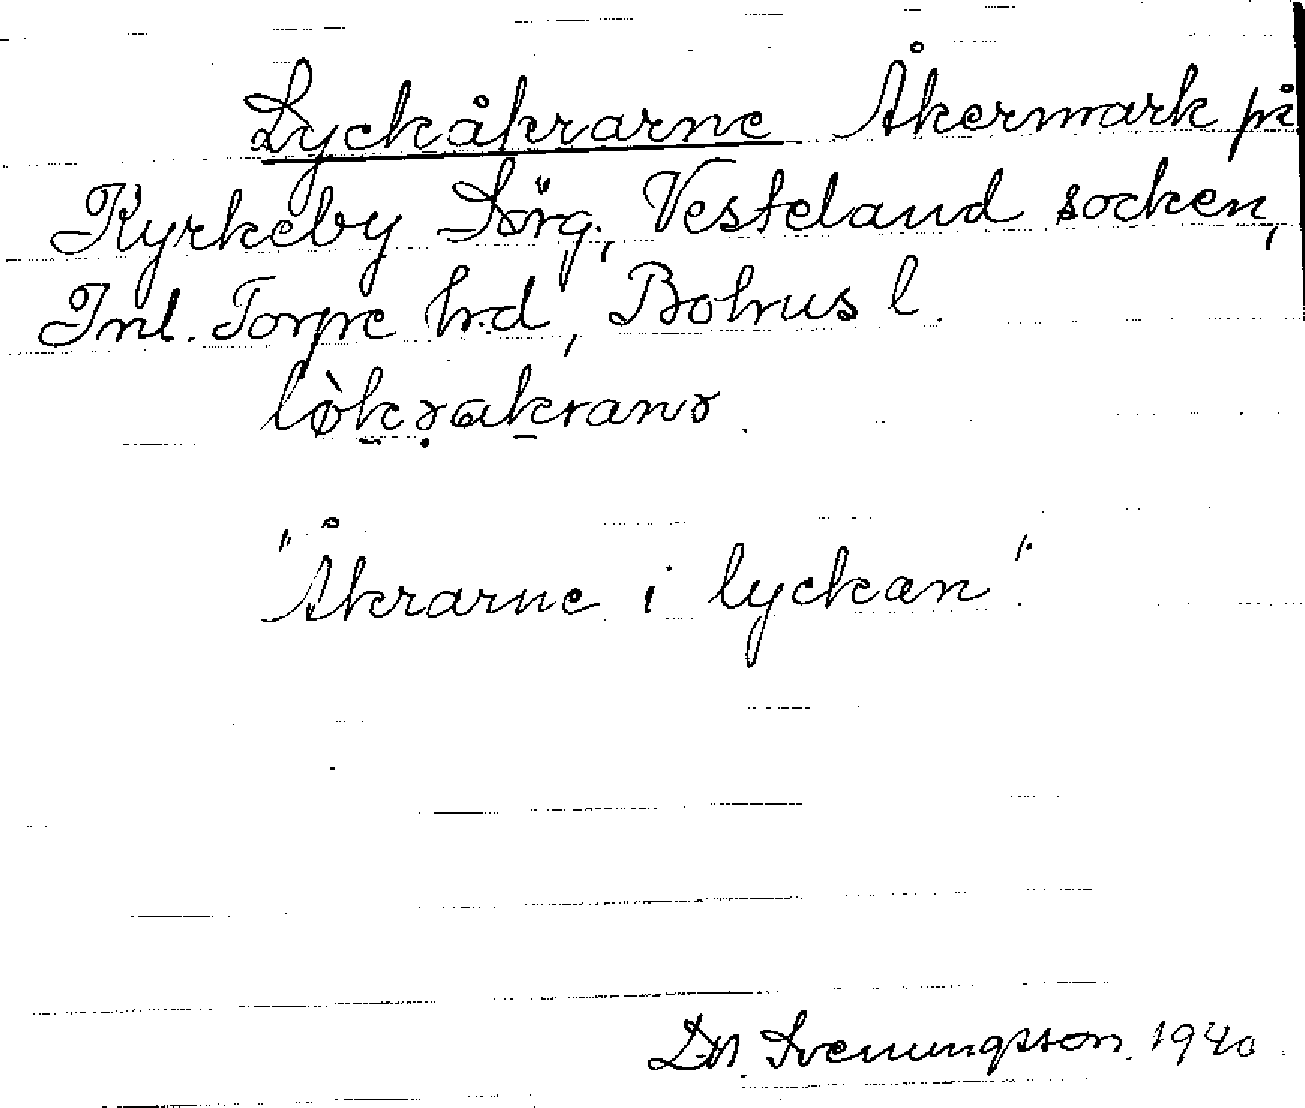 Lyckåkrarne Åkermark på
Kyrkeby Sörg., Vesteland socken,
Inl. Torpe h.d, Bohus l.
"Åkrarne i lyckan"
Svenungsson. 1940